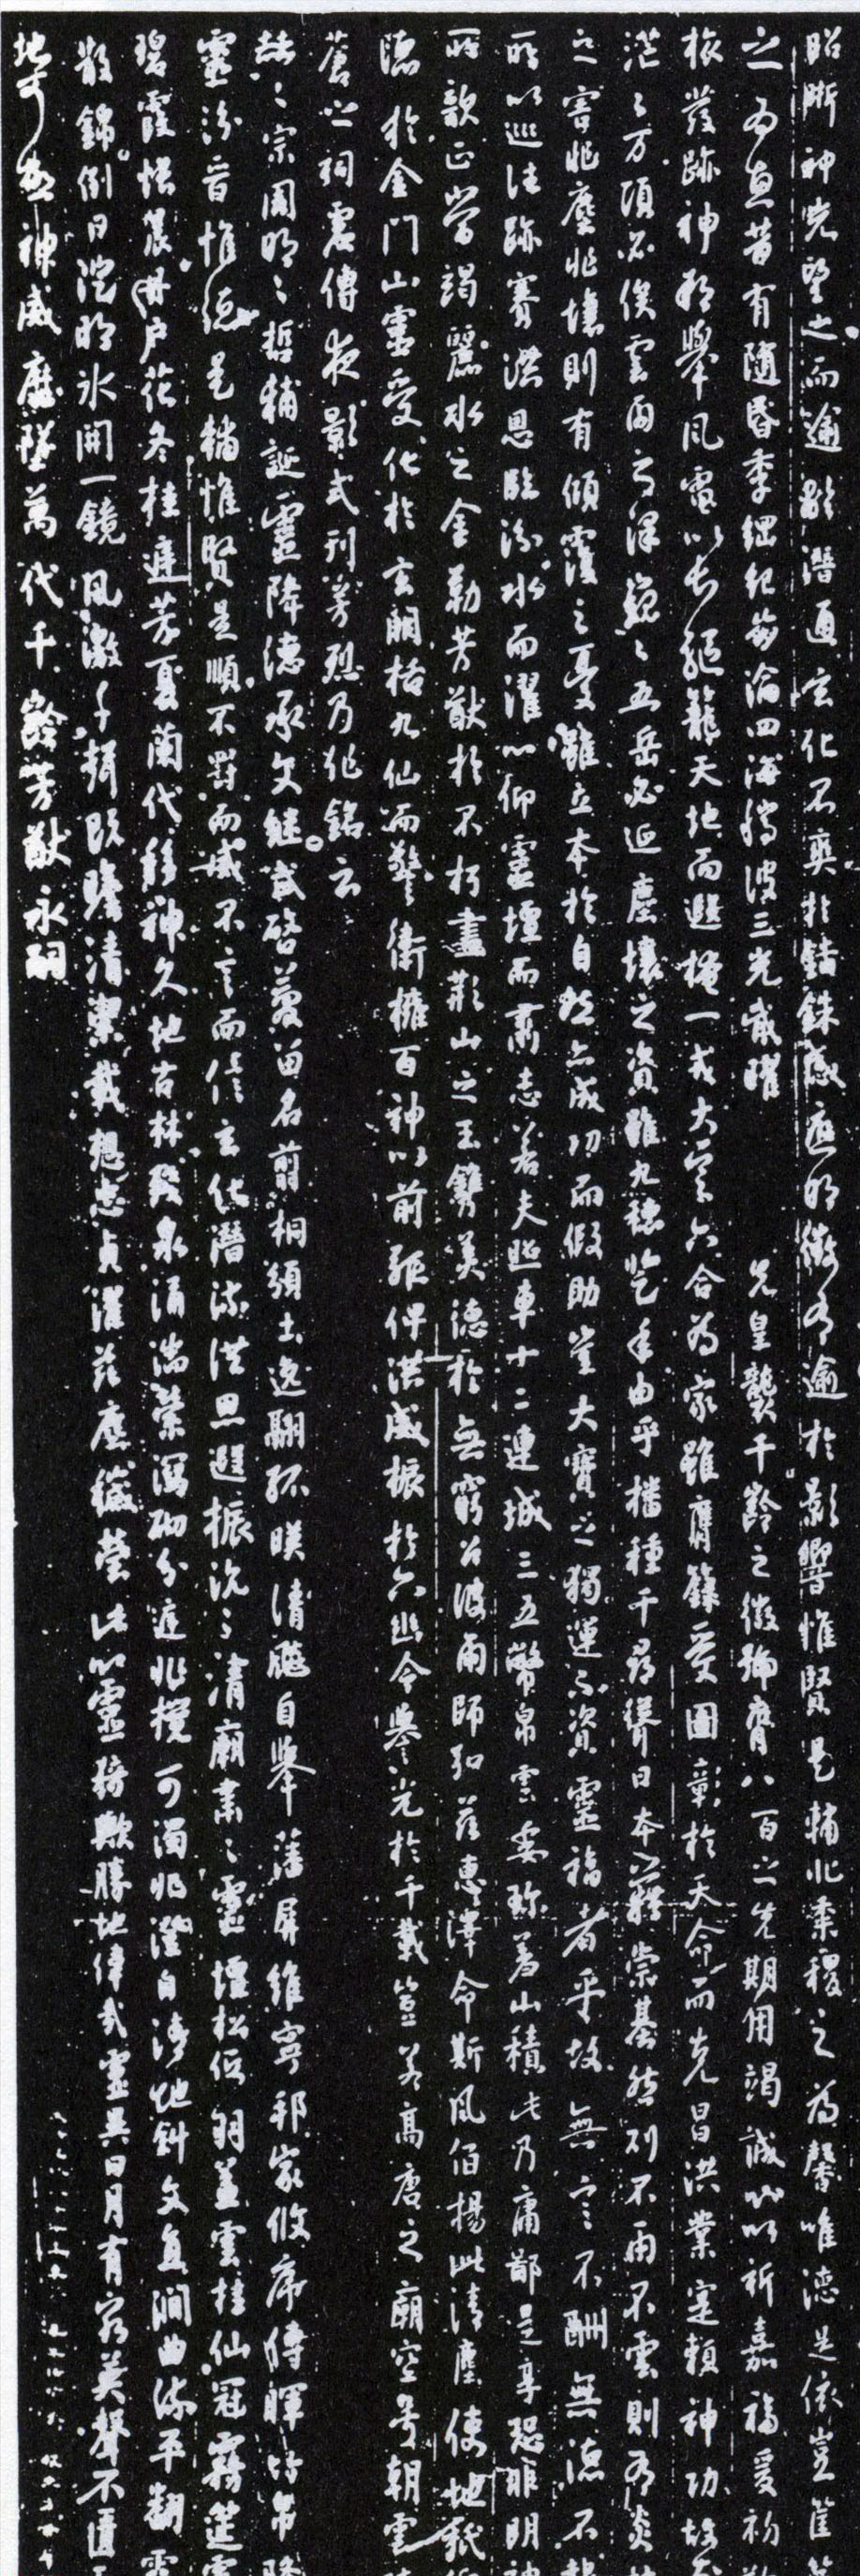 昭晰神光望之而逾顯潛通玄化不爽於錙銖感應明徵有逾於影響惟賢是輔非黍稷之為馨唯德是依豈筐
之為惠昔有隨昏季綱紀崩淪四海騰波三光戢曜先皇襲千齡之徽號膺八百之先期用竭誠心以祈嘉福爰初
旅發跡神邦舉風電以長驅籠天地而遐捲一戎大定六合為家雖膺籙受圖彰於天命而克昌洪業寔賴神功故
茫茫萬頃必俟雲雨之澤巍巍五岳必延塵壤之資雖九穗登年由乎播種千尋聳日本藉崇基然則不雨不雲則有炎
之害非塵非壤則有傾覆之憂雖立本於自然亦成功而假助豈大寶之獨運不資靈福者乎故無言不酬無德不
所以巡往跡賽洪恩臨汾水而濯心仰靈壇而肅志若夫照車十二連城三五幣帛雲委珍羞山積此乃庸鄙是享恐非明神
所歆正當竭麗水之金勒芳猷於不朽盡荊山之玉鐫美德於無窮召彼雨師弘茲惠澤命斯風伯揚此清塵使地祇
臨於金門山靈受化於玄闕括九仙而警衛擁百神以前驅俾洪威振於六幽令譽光於千載豈若高唐之廟空號朝雲
蒼之祠虛傳夜影式刊芳烈乃作銘云
赫赫宗周明明哲輔誕靈降德承文繼武啓慶留名翦桐頒土逸翮孤映清飈自舉藩屏維寧邦家攸序傳暉竹帛降
靈汾晉惟德是輔惟賢是順不罸而威不言而信玄化潛流洪恩遐振沉沉清廟肅肅靈壇松低羽蓋雲挂仙冠霧筵霄
碧霞帳晨丹戶花冬桂庭芳夏蘭代移神久地古林殘泉涌湍縈瀉砌分庭非攪可濁非澄自清地斜文直澗曲流平翻霞
散錦倒日澄明冰開一鏡風激千聲既瞻清潔載想忠貞濯茲塵穢瑩此心靈猗歟勝地偉哉靈異日月有窮英聲不匱
地可極神威靡墜萬代千齡芳猷永嗣